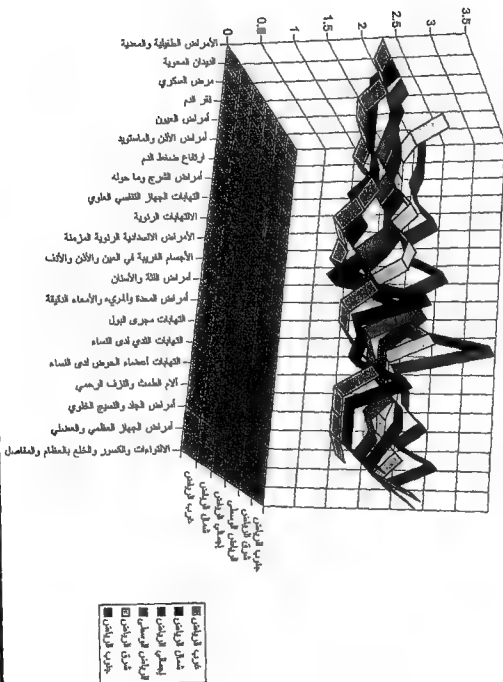 3.5
3
2.5
2
1.5
1
0
الأمراض الطفيلية والمعدية
الديدان المعوية
مرض السكري
فقر الدم
أمراض العيون
أمراض الأذن والماستويد
ارتفاع ضغط الدم
أمراض الشرج وما حوله
التهابات الجهاز التنفسي العلوي
الالتهابات الرئوية
الأمراض الانسدادية الرئوية المزمنة
الأجسام الغريبة في العين والأذن والأنف
أمراض اللثة والأسنان
أمراض المعدة والمريء والأمعاء الدقيقة
التهابات مجرى البول
التهابات الثدي لدى النساء
التهابات أعضاء الحوض لدى النساء
آلام الطمث والنزف الرحمي
أمراض الجلد والنسيج الخلوي
أمراض الجهاز العظمي والعضلي
الالتواءات والكسور والخلع بالعظام والمفاصل
غرب الرياض
شمال الرياض
إجمالي الرياض
الرياض الوسطى
شرق الرياض
جنوب الرياض
غرب الرياض
شمال الرياض
إجمالي الرياض
الرياض الوسطى
شرق الرياض
جنوب الرياض